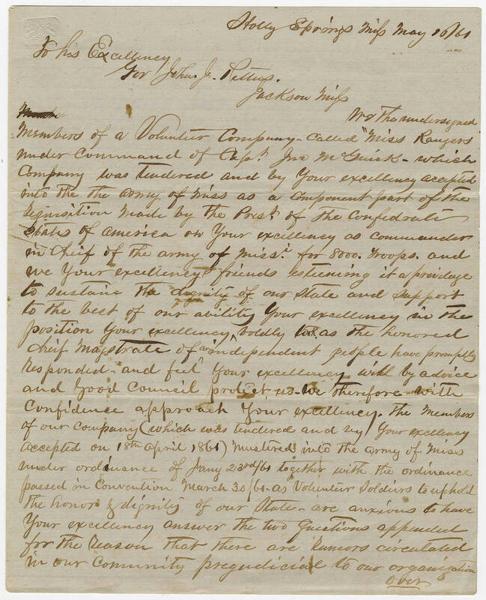 Holly Springs Miss May 16/61
To his Excellency
Gov John. J. Pettus.
Jackson Miss
We The undersigned
Members of a Volunteer Company- Called "Miss Rangers
under Command of Capt Jno M Guirk- which
Company was tendered and by Your excellency accepted
into the the army of Miss as a component part of the
requisition made by the Prest of the Confedrate
States of america on Your excellency as commander
in Chief of the army of Miss. for 8000. troops. and
we Your excellency friends esteeming it a privilage
to sustain the dignity of our State and support
to the best of our ability Your excellency in the
position Your excellency boldly as the honored
chief Magistrate of an independent people have promptly
responded- and feel Your excellency will by advice
and good Council protect us we therefore with
Confidence approach Your excellency. The Members
of our Company (which was tendered and by Your excellency
accepted on 18th april 1861) Mustered into the army of Miss
under ordinance of Jany 23rd/61 together with the ordinance
passed in Convention March 30/61- as Volunteer Soldiers to uphold
the honor & dignity of our State- are anxious to have
Your excellency answer the two questions appended
for the reason that there are rumors circulated
in our Community prejudicial to our organization
over